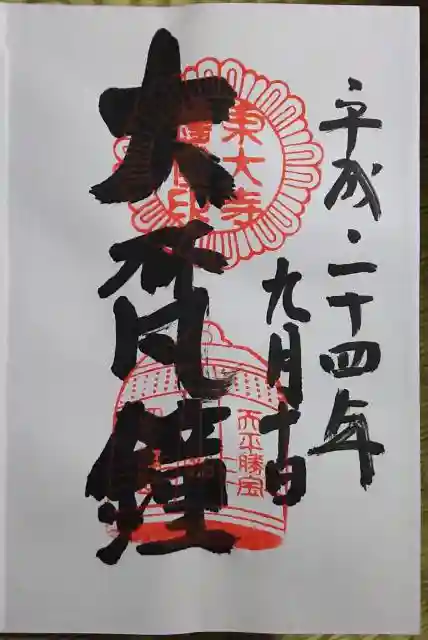 平成・二十四年
九月十日
大梵鐘
東大寺
天平勝宝